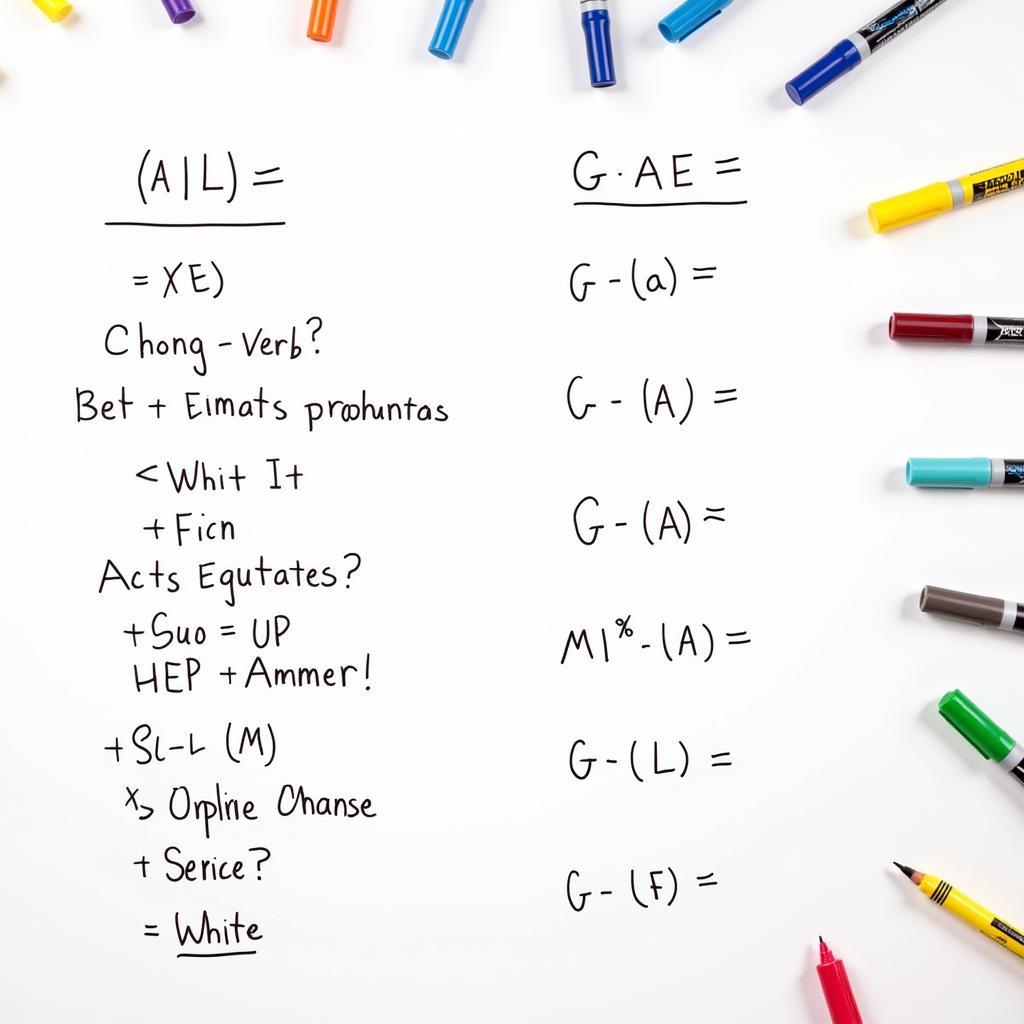 (A|L) =
= XE)
Chong - Verb?
Bet + Eimats prohuntas
< Whit It
+ Ficn
Acts Egutates?
+ Suo = UP
HEP + Ammer!
+ SL-L (M)
Orpline Chanse
+ Serice?
= White
G·AE =
G-(a) =
G-(A) =
G-(A) =
MI%-(A) =
G-(L) =
G-(F) =